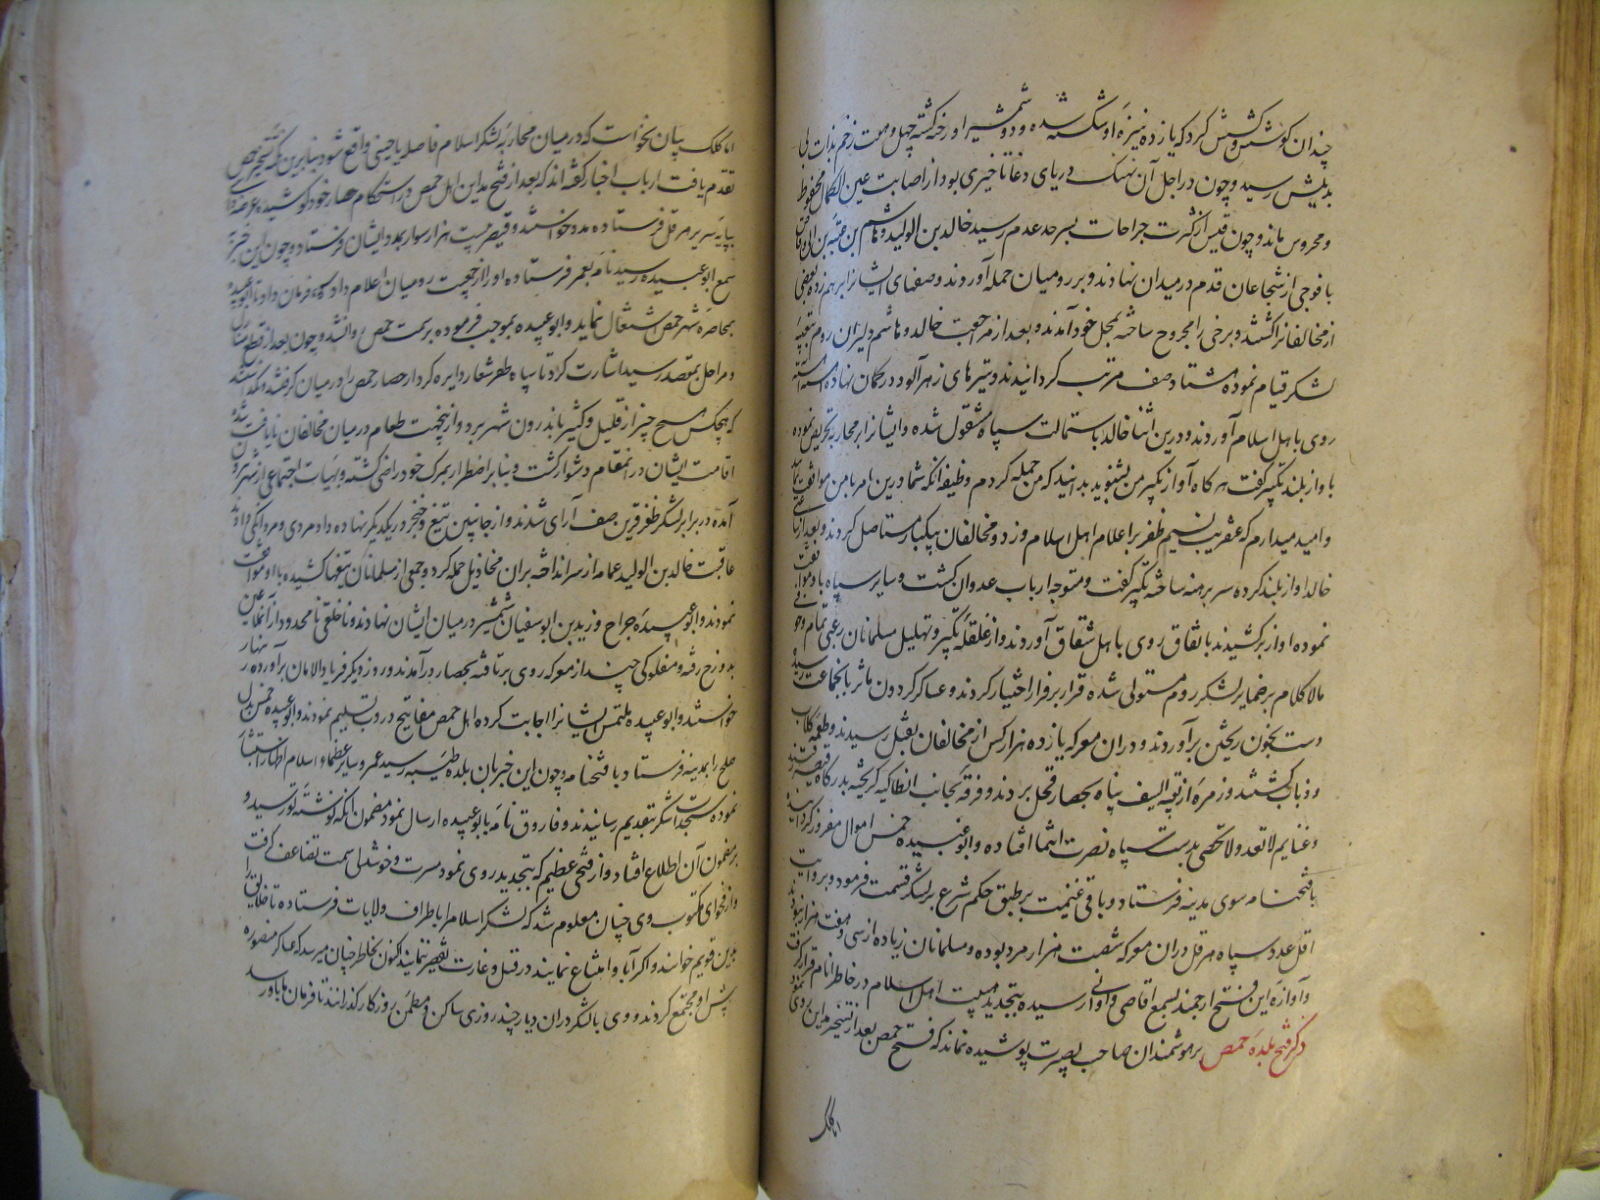 چندان کوشش و کشش کرد که یازده نیزه او شکسته شده و دو شمشیر او رخنه گشته چهل و هفت زخم بذات بی
بدیلش رسید و چون در اجل آن نهنک دریای دغا تاخیری بود از اصابت عین الکمال محفوظ
و محروس ماند و چون قیس از کثرت جراحات بسرحد عدم رسید خالد بن الولید و هاشم بن عتبه بن ابی وقاص
با فوجی از شجاعان قدم در میدان نهادند و بر رومیان حمله آوردند و صفهای ایشانرا برهم زده بعضی
از مخالفانرا کشتند و برخی را مجروح ساخته بمحل خود آمدند و بعد از مراجعت خالد و هاشم دلیران روم بتعبیه
لشکر قیام نموده هشتاد صف مرتب کردانیدند و تیرهای زهرآلود در کمان نهاده
روی باهل اسلام آوردند و درین اثنا خالد باستمالت سپاه مشغول شده و ایشانرا بر محاربه تحریض نموده
باواز بلند تکبیر گفت هرکاه آواز تکبیر من بشنوید بدانید که من حمله کردم وظیفه آنکه شما درین امر با من موافقت
و امید میدارم که عنقریب نسیم ظفر بر اعلام اهل اسلام وزد و مخالفان بیکبار مستاصل کردند و بعد ازان
خالد اواز بلند کرده سر برهنه ساخته تکبیر گفت و متوجه ارباب عدوان کشت و سایر سپاه با او موافقت
نموده اواز برکشیدند باتفاق روی باهل شقاق آوردند و از غلغله تکبیر و تهلیل مسلمانان رعبی تمام و خوفی
مالاکلام بر ضمایر لشکر روم مستولی شده قرار بر فرار اختیار کردند و عساکر کردون ماثر بانجماعت رسیده
دست بخون ریختن برآوردند و دران معرکه یازده هزار کس از مخالفان بقتل رسیدند و طعمه کلاب
و ذباب کشتند و زمره از بقیه السیف پناه بحصار فحل بردند و فرقه بجانب انطاکیه کریخته بدرکاه قیصر رفتند
و غنایم لاتعد و لاتحصی بدست سپاه نصرت انتما افتاده و ابو عبیده خمس اموال مفروز کردانیده
با فتحنامه سوی مدینه فرستاد و باقی غنیمت بر طبق حکم شرع بر لشکر قسمت فرمود و بروایت
اقل عدد سپاه هرقل دران معرکه شصت هزار مرد بوده و مسلمانان زیاده از سی و هفت هزار نبودند
و آوازه این فتح ارجمند بسمع اقاصی و ادانی رسیده بتجدید هیبت اهل اسلام در خاطر انام قرار گرفت
ذکر فتح بلده حمص بر هوشمندان صاحب بصیرت پوشیده نماند که فتح حمص بعد از تسخیر مداین روی نمود
اما کلک
اما کلک بیان نخواست که در میان محاربه لشکر اسلام فاصله یا حینی واقع شود بنابرین
تقدم یافت ارباب اخبار گفته اند که بعد از فتح مداین اهل حمص در استحکام حصار خود کوشیده عرضه داشتی
بپایه سریر هرقل فرستاده مدد خواستند و قیصر بیست هزار سوار بمدد ایشان فرستاد و چون این خبر
بسمع ابو عبیده رسید نامه بعمر فرستاده او را از جمعیت رومیان اعلام داد فرمان داد تا ابو عبیده
بمحاصره شهر حمص اشتغال نماید و ابو عبیده بموجب فرموده بر سمت حمص روان شد و چون بعد از قطع منازل
و مراحل بمقصد رسید اشارت کرد تا سپاه ظفر شعار دایره کردار حصار حمص را در میان گرفتند و نکذاشتند
که هیچکس هیچ چیز از قلیل و کثیر باندرون شهر برد و ازینجهت طعام در میان مخالفان نایافت شد
اقامت ایشان در انمقام دشوار گشت و بنابر اضطرار بمرک خود راضی کشته و بهیات اجتماعی از شهر برون
آمده در برابر لشکر ظفر قرین صف آرای شدند و از جانبین تیغ و خنجر در یکدیگر نهاده داد مردی و مردانکی دادند
عاقبت خالد بن الولید عمامه از سر انداخته بران مخاذیل حمله کرد و جمعی از مسلمانان تیغها کشیده با او موافقت
نمودند و ابو عبیده جراح و زید بن ابو سفیان شمشیر در میان ایشان نهادند و تا خلقی نامحدود از آنملاعین
بدوزخ رفته و مفلوکی چند از معرکه روی برتافته بحصار درآمدند و روز دیگر فریاد الامان برآورده زنهار
خواستند و ابو عبیده ملتمس ایشانرا اجابت کرده اهل حمص مفاتیح دروب تسلیم نمودند و ابو عبیده خمس بدل
صلح را بمدینه فرستاد با فتحنامه و چون این خبر بان بلده طیبه رسید عمر و سایر عظماء اسلام اظهار استبشار
نموده سجدات شکر بتقدیم رسانیدند و فاروق نامه بابو عبیده ارسال نمود مضمون آنکه نوشته تو رسید و
بر مضمون آن اطلاع افتاد و از فتحی عظیم که بتجدید روی نمود مسرت و خوشدلی سمت تضاعف گرفت
و از فحوای مکتوب وی چنان معلوم شد که لشکر اسلام را باطراف ولایات فرستاده تا خلایق را
بدین قویم خوانند و اکر آبا و امتناع نمایند در قتل و غارت تقصیر ننمایند اکنون بخاطر چنان میرسد که عساکر منصوره
پیش او مجتمع گردند و وی با لشکر دران دیار چند روزی ساکن و مطمئن روزکار گذرانند تا فرمان ما باو رسد